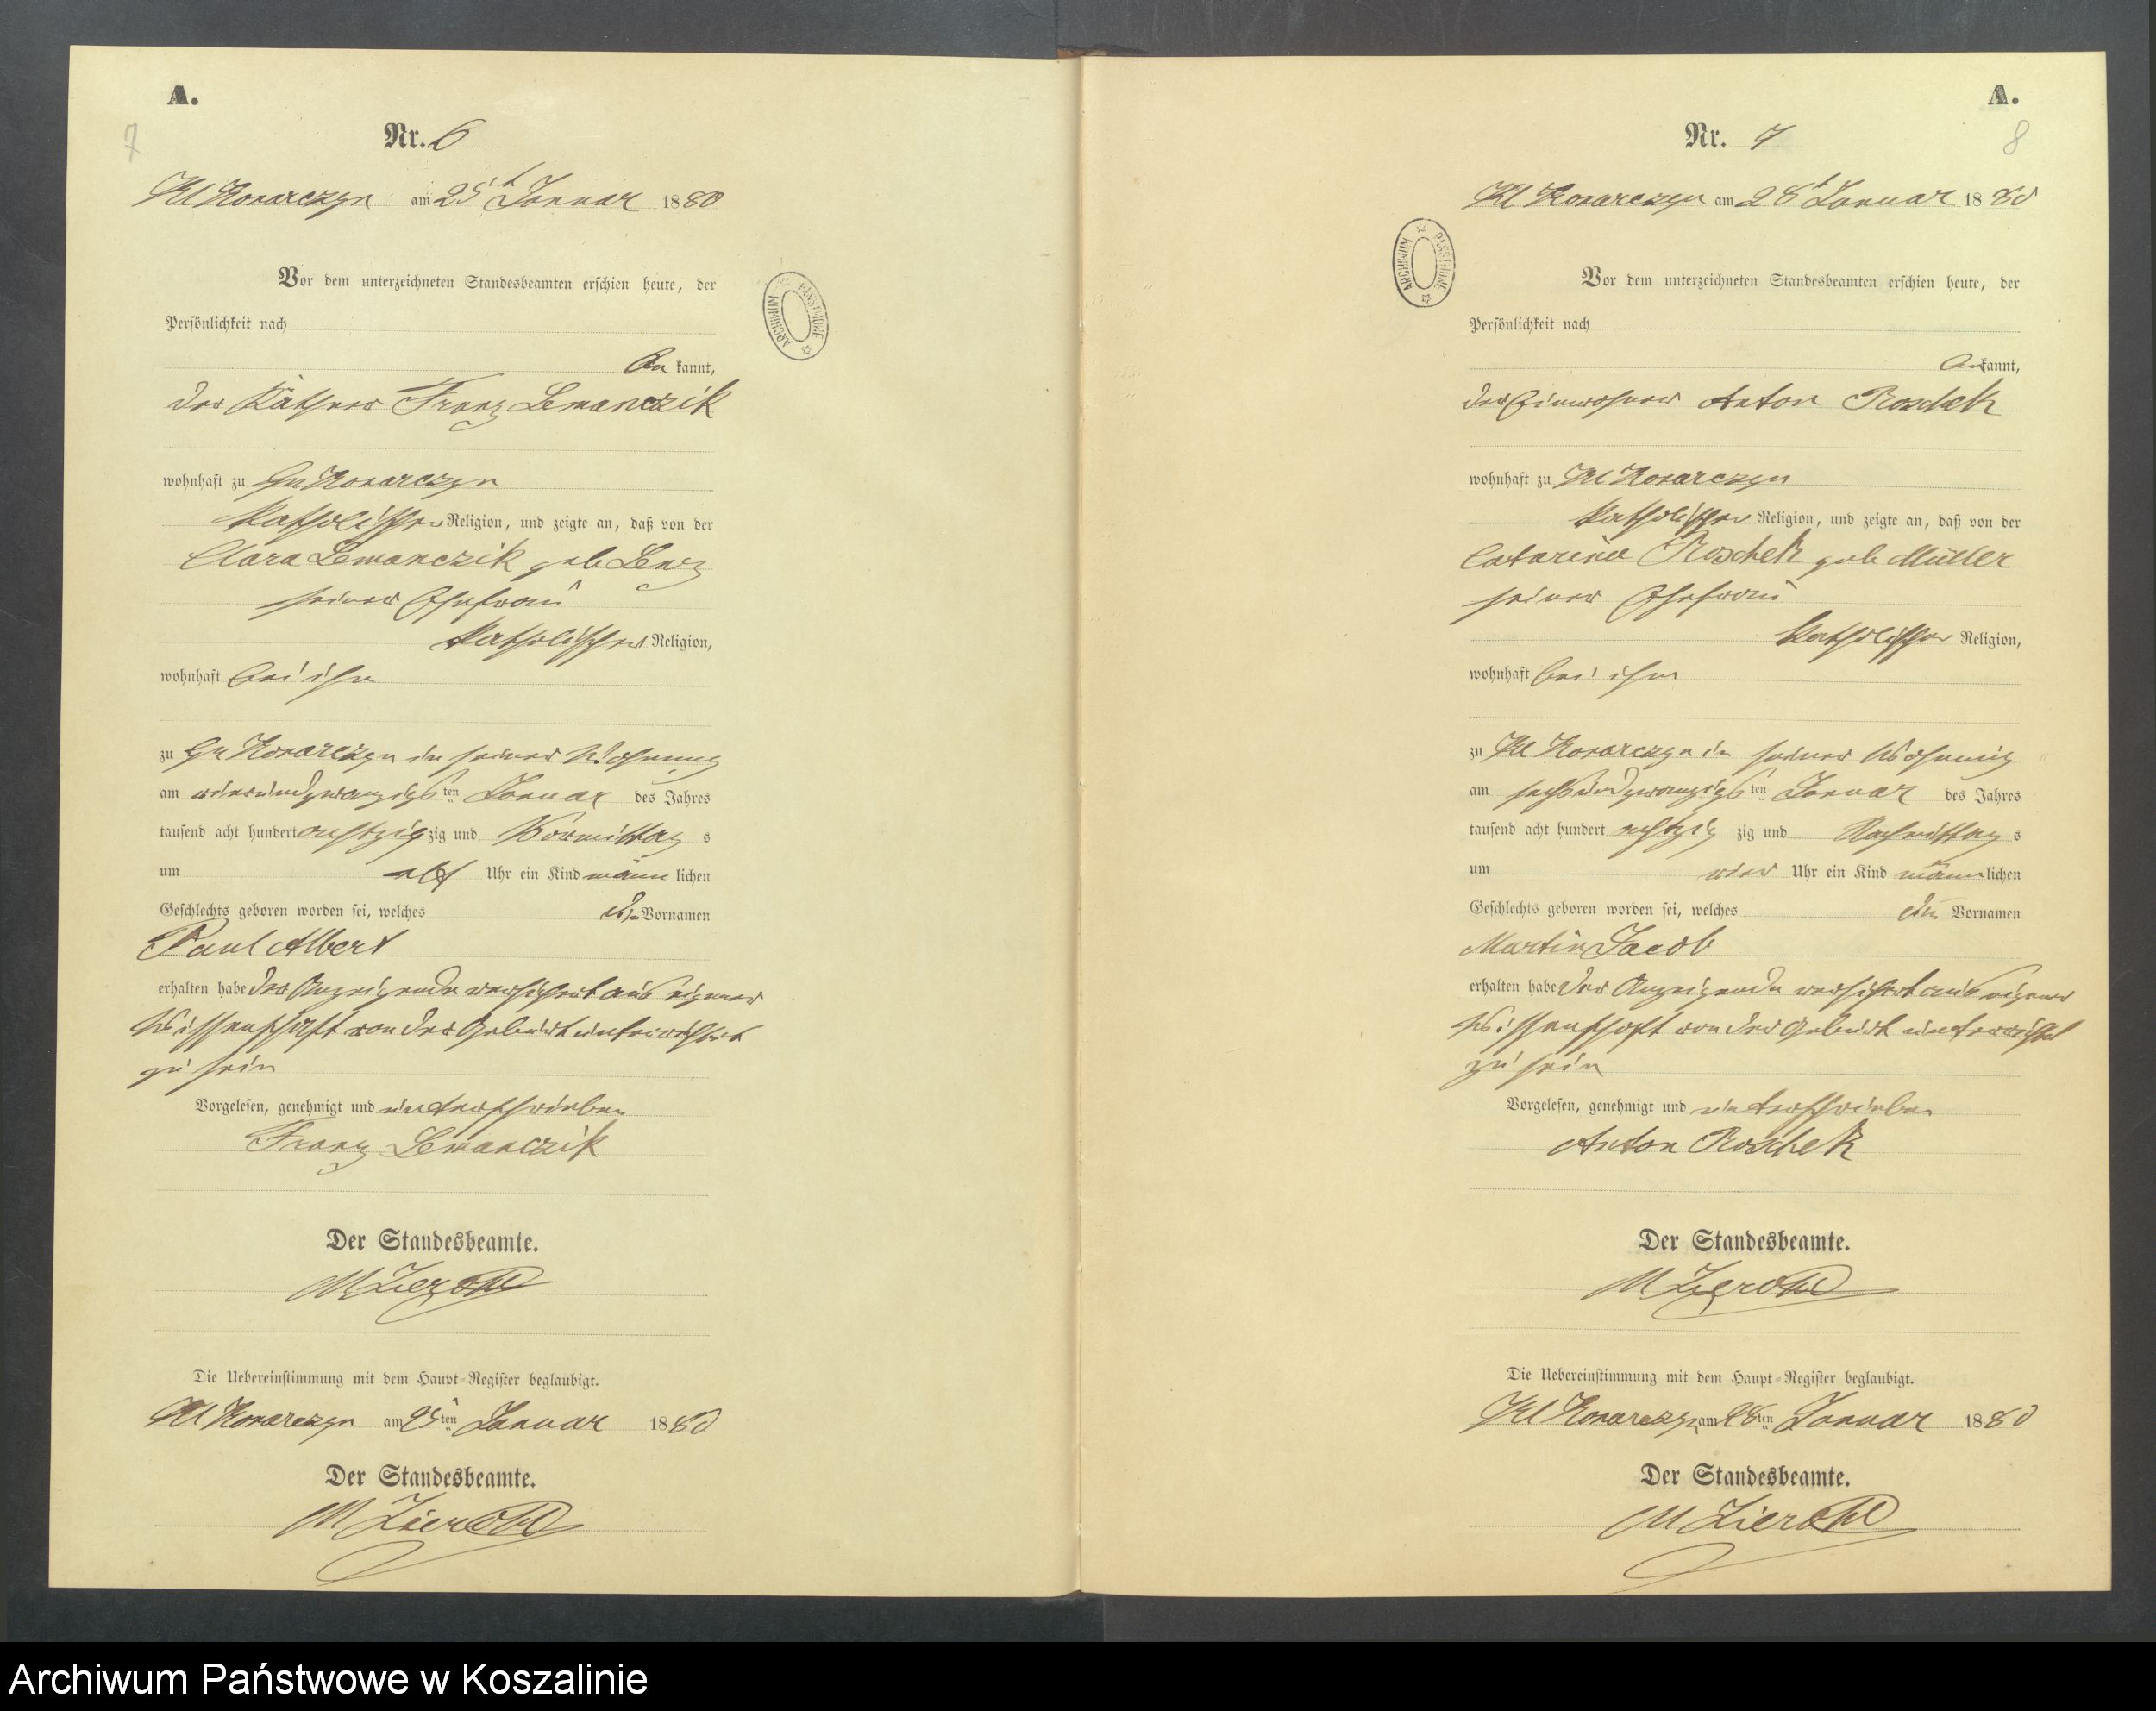 A.
7
Nr. 6
Kl Konarczyn am 25t Januar 1880
Vor dem unterzeichneten Standesbeamten erschien heute, der
Persönlichkeit nach
be kannt,
der Käthner Franz Lemanczik
wohnhaft zu Gr Konarczyn
katholischer Religion, und zeigte an, daß von der
Clara Lemanczik geb Lenz
seiner Ehefrau
katholischer Religion,
wohnhaft bei ihm
zu Gr Konarczyn in seiner Wohnung
am vierundzwanzigsten Januar des Jahres
tausend acht hundert achtzig zig und Vormittag s
um elf Uhr ein Kind männ lichen
Geschlechts geboren worden sei, welches die Vornamen
Paul Albert
erhalten habe der Anzeigende versichert aus eigener
Wissenschaft von der Geburt unterrichtet
zu sein
Vorgelesen, genehmigt und unterschrieben
Franz Lemanczik
Der Standesbeamte.
Die Uebereinstimmung mit dem Haupt-Register beglaubigt.
Kl Konarczyn am 25ten Januar 1880
Der Standesbeamte.
ARCHIWUM PAŃSTWOWE
A.
8
Nr. 7
Kl Konarczyn am 28t Januar 1880
Vor dem unterzeichneten Standesbeamten erschien heute, der
Persönlichkeit nach
be kannt,
der Einwohner Anton Roschek
wohnhaft zu Kl Konarczyn
katholischer Religion, und zeigte an, daß von der
Catarina Roschek geb Müller
seiner Ehefrau
katholischer Religion,
wohnhaft bei ihm
zu Kl Konarczyn in seiner Wohnung
am sechsundzwanzigsten Januar des Jahres
tausend acht hundert achtzig zig und Nachmittag s
um vier Uhr ein Kind männ lichen
Geschlechts geboren worden sei, welches die Vornamen
Martin Jacob
erhalten habe der Anzeigende versichert aus eigener
Wissenschaft von der Geburt unterrichtet
zu sein
Vorgelesen, genehmigt und unterschrieben
Anton Roschek
Der Standesbeamte.
Die Uebereinstimmung mit dem Haupt-Register beglaubigt.
Kl Konarczyn am 28ten Januar 1880
Der Standesbeamte.
ARCHIWUM PAŃSTWOWE
Archiwum Państwowe w Koszalinie